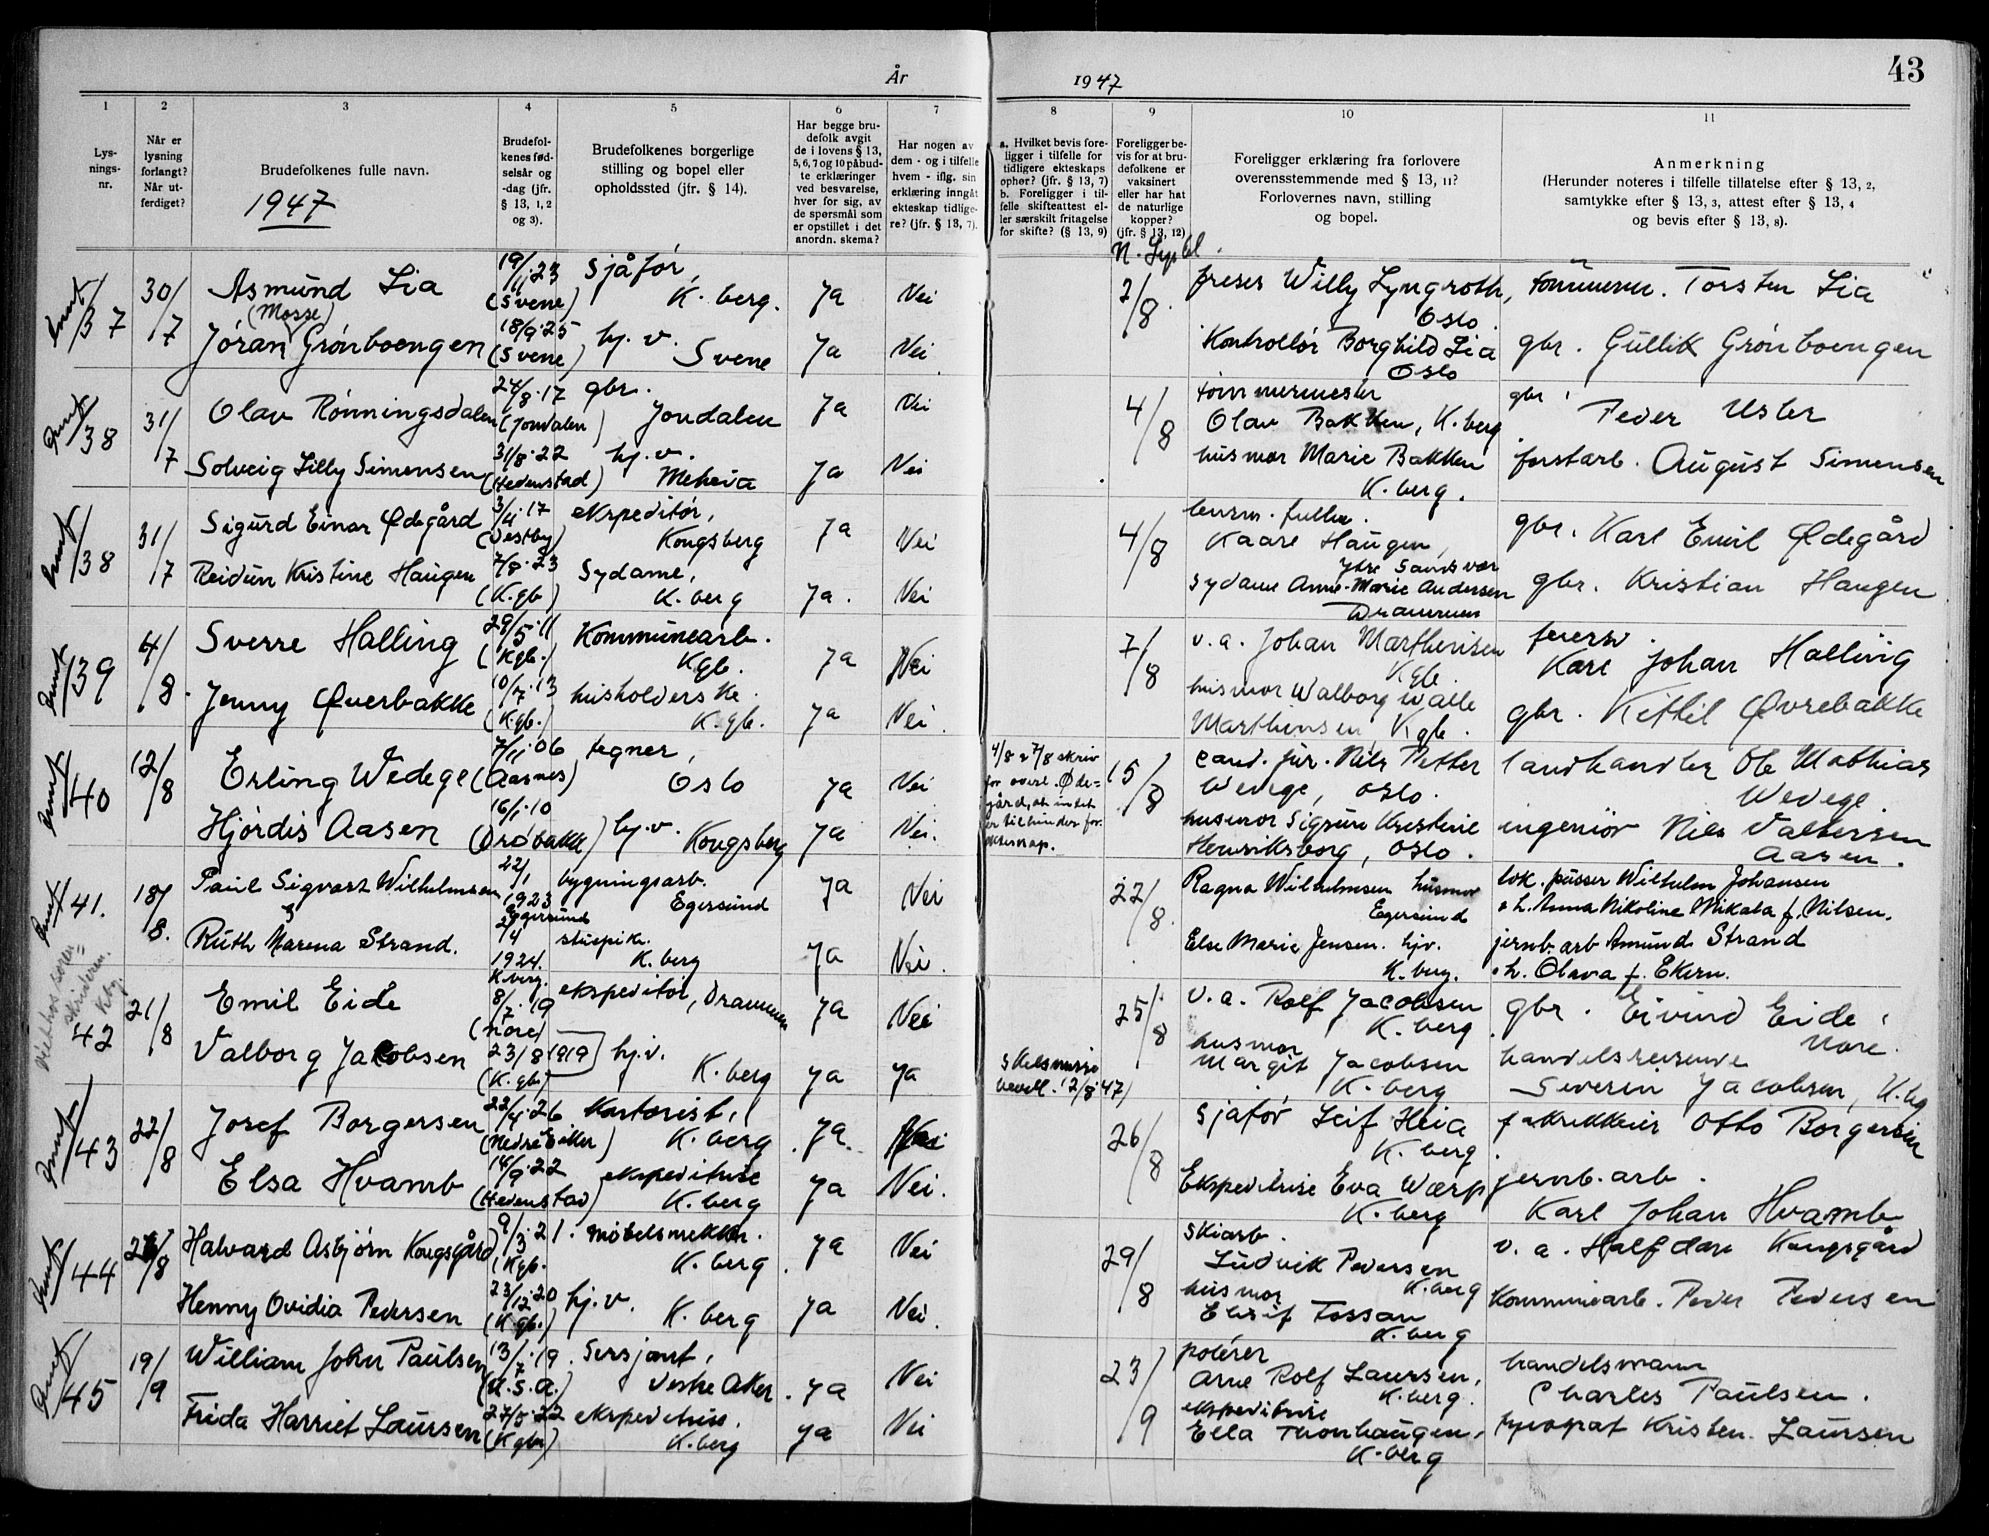 År 1947
43
1 2 3 4 5 6 7 8 9 10 11
Lys-
nings-
nr.
Når er
lysning
forlangt?
Når ut-
ferdiget?
Brudefolkenes fulle navn.
1947
Brudefol-
kenes fød-
selsår og
-dag (jfr.
§ 13, 1, 2
og 3).
Brudefolkenes borgerlige
stilling og bopel eller
opholdssted (jfr. § 14).
Har begge bru-
defolk avgit
de i lovens § 13,
5, 6, 7 og 10 påbud-
te erklæringer
ved besvarelse,
hver for sig, av
de spørsmål som
er opstillet i det
anordn. skema?
Har nogen av
dem - og i tilfelle
hvem - iflg. sin
erklæring inngått
ekteskap tidlige-
re? (jfr. § 13, 7).
a. Hvilket bevis fore-
ligger i tilfelle for
tidligere ekteskaps
ophør? (jfr. § 13, 7)
b. Foreligger i til-
felle skifteattest el-
ler særskilt fritagelse
for skifte? (§ 13, 9)
Foreligger be-
vis for at bru-
defolkene er
vaksinert
eller har hat
de naturlige
kopper?
(jfr. § 13, 12)
Foreligger erklæring fra forlovere
overensstemmende med § 13, 11?
Forlovernes navn, stilling
og bopel.
Anmerkning
(Herunder noteres i tilfelle tillatelse efter § 13, 2,
samtykke efter § 13, 3, attest efter § 13, 4
og bevis efter § 13, 8).
37 30/7 Asmund Lia 19/11.23 (Svene) sjåfør, K.berg. Ja Nei 2/8. Willy Lyngroth, Oslo. Torsten Lia
(Mosse)
Jøran Grønboengen 18/9.25 (Svene) hj.v. Svene Ja Nei Kontrollør Borghild Lia Oslo gbr. Gullik Grønboengen
38 31/7 Olav Rønningsdalen 24/8.17 (Jondalen) gbr. Jondalen Ja Nei 4/8 tømmermester Olav Bakken, K.berg gbr. Peder Uster
Solveig Lilly Simensen 31/8.22 (Hedenstad) hj.v. Meheia Ja Nei husmor Marie Bakken K.berg. forstarb. August Simensen
38 31/7 Sigurd Einar Ødegård 3/4.17 (Vestby) ekspeditør, Kongsberg Ja Nei 4/8 Kaare Haugen, Ytre Sandsvær gbr. Karl Emil Ødegård
Reidun Kristine Haugen 7/8.23 (K.gb) Sydame, K.berg Ja. Nei Sydame Anne-Marie Andersen Drammen gbr. Kristian Haugen
39 4/8. Sverre Halling 29/5.11 (Kgb.) Kommunearb. Kgb. Ja Nei 7/8 v.a. Johan Marthinsen Kgb. Karl Johan Halling
Jenny Øverbakke 10/7.13 (Kgb.) husholderske. K.gb. Ja Nei husmor Walborg Walle Marthinsen, Kgb. gbr. Kittil Øvrebakke
40 12/8 Erling Wedege 7/11.06 (Aasnes) tegner, Oslo Ja Nei 15/8 cand. jur. Nils Petter Wedege, Oslo. landhandler Ole Mathias Wedege.
4/8 27/8 skriv
for overl. Øde-
gård, at intet
er til hinder for
ekteskap.
Hjørdis Aasen 16/1.10 (Drøbakk) hj.v. Kongsberg Ja Nei. husmor Sigrun Kristine Henriksborg, Oslo. ingeniør Nils Valtersen Aasen.
41. 18/8. Paul Sigvart Wilhelmsen 22/1 1923 Egersund bygningsarb. Egersund Ja Nei 22/8. Ragna Wilhelmsen husmor Egersund lok. pusser Wilhelm Johansen
o h. Anna Nikoline Mikala f. Nilsen.
Ruth Marena Strand. 1924. K.berg. stuepike. K.berg Ja Nei. Else Marie Jensen. hjv. K.berg. jernb.arb Amund Strand
o h. Olava f. Ekern.
42 21/8 Emil Eide 8/7.19 (Nore) ekspeditør, Drammen Ja Nei 25/8 v.a. Rolf Jacobsen K.berg gbr. Eivind Eide, Nore.
Valborg Jacobsen 23/8 1919 (K.gb.) hj.v. K.berg Ja Ja husmor Margit Jacobsen K.berg handelsreisende Severin Jacobsen, K.bg
43 22/8 Josef Borgersen 22/4.26 (Nedre Eiker) Kontorist, K.berg. Ja. Nei 26/8 sjåfør Leif Heia K.berg. Otto Borgersen
Elsa Hvamb 14/9.22 (Hedenstad) ekspeditrise K.berg Ja Nei. Ekspeditrise Eva Wærp K.berg jernb.arb. Karl Johan Hvamb
44 26/8 Halvard Asbjørn Kongsgård 9/3.21. (Kgb. møbelsnekker. K.berg. Ja Nei 29/8 skiarb. Ludvik Pedersen K.berg v.a. Halfdan Kongsgård
Henny Ovidia Pedersen 23/12.20 (Kgb.) hj.v. K.berg Ja Nei. husmor Elsif Fossan K.berg Kommunearb. Peder Pedersen
45 19/9 William John Paulsen 13/7.19 (U.S.A.) Sersjant, Vestre Aker. Ja Nei 23/9 polérer Arne Rolf Laursen, K.berg. handelsmann Charles Paulsen.
Frida Harriet Laursen 27/5.22 (Kgb) ekspeditrise. K.berg Ja Nei ekspeditrise Ella Thorhaugen, K.berg typograf Kristen Laursen